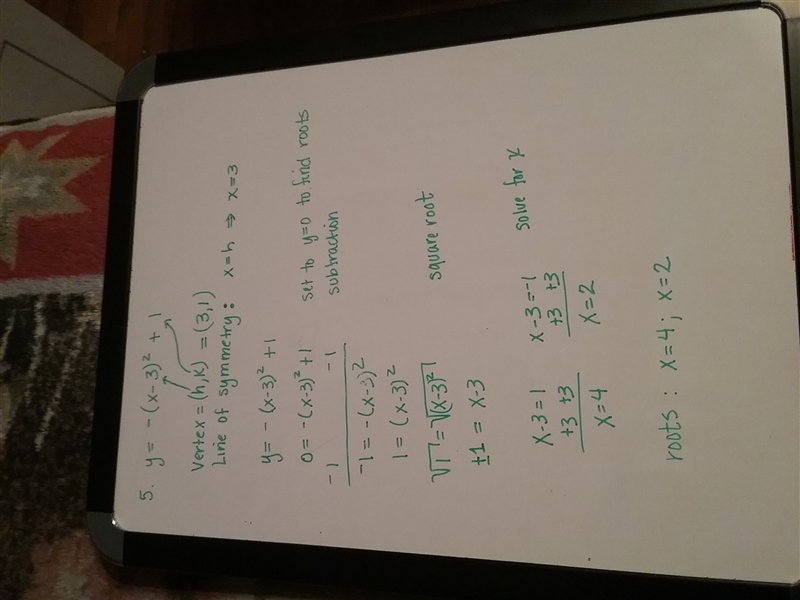 5. y = -(x-3)² + 1
Vertex = (h,k) = (3,1)
Line of symmetry: x=h ⇒ x=3
y = -(x-3)² +1
0 = -(x-3)² +1 set to y=0 to find roots
-1 -1 subtraction
-1 = -(x-3)²
1 = (x-3)²
√1 = √(x-3)² square root
±1 = x-3
x-3=1 x-3=-1 solve for x
+3 +3 +3 +3
x=4 x=2
roots: x=4; x=2